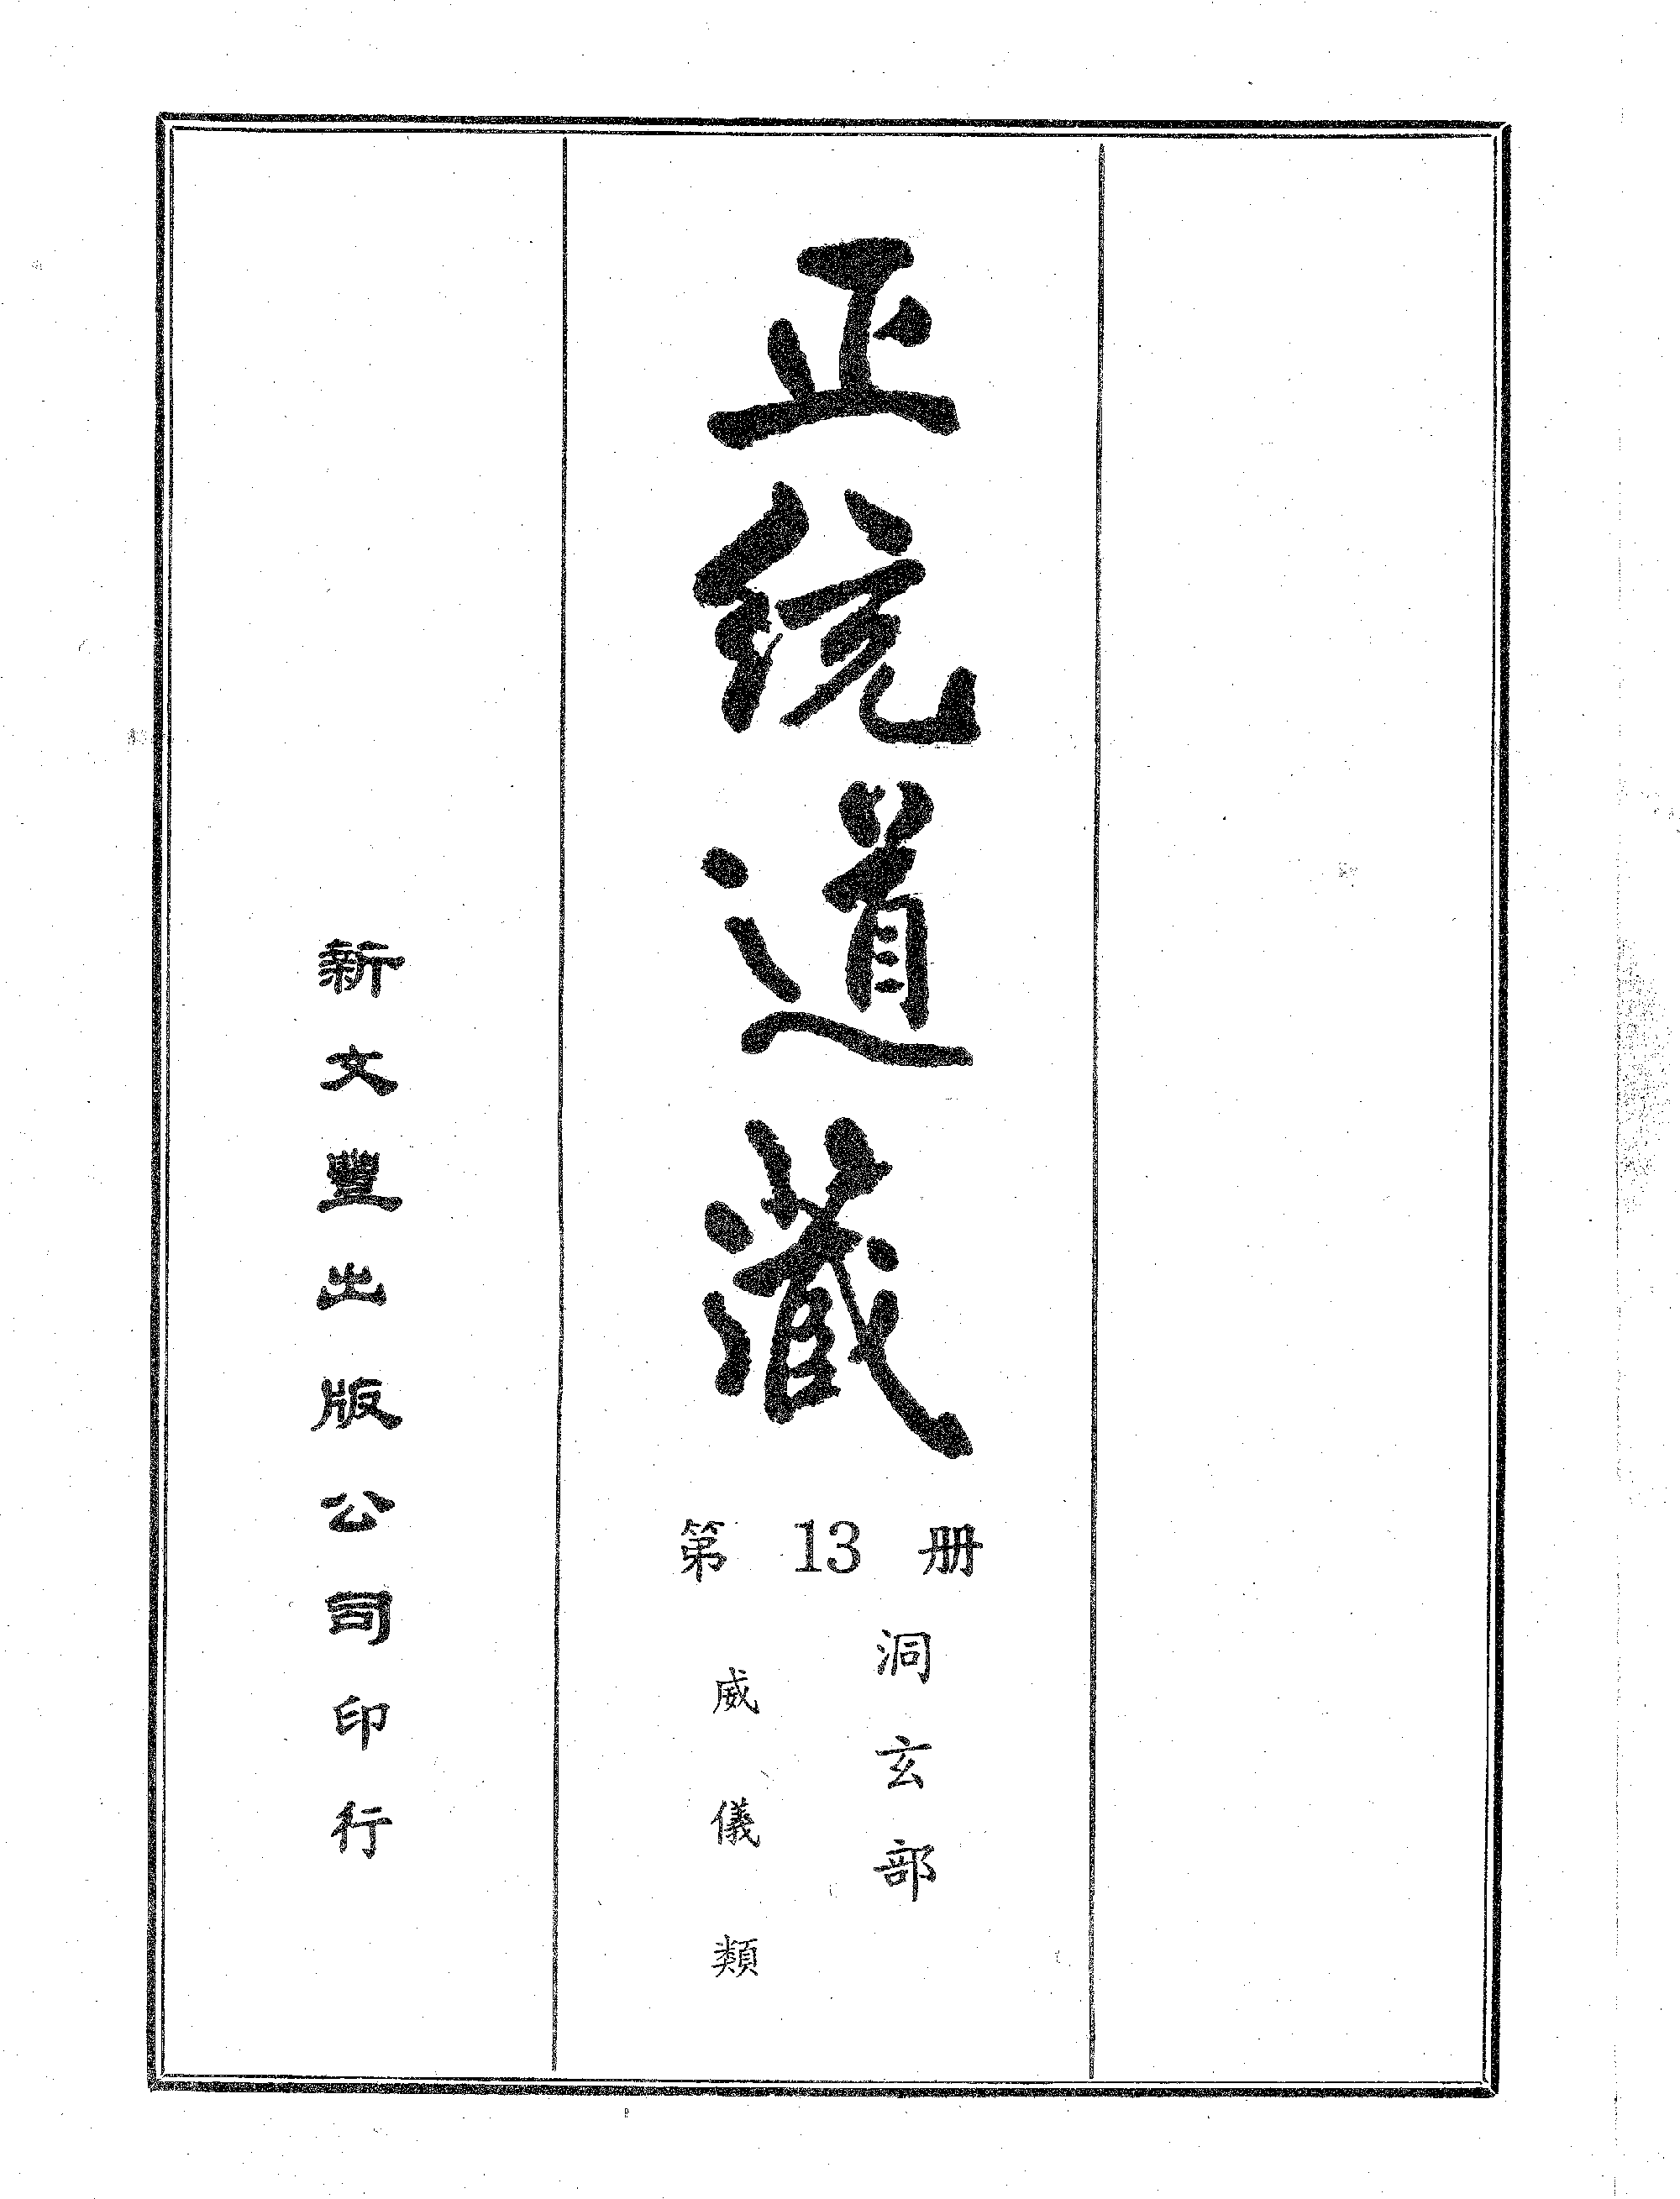 正統道藏
第13册
洞玄部
威儀類
新文豐出版公司印行